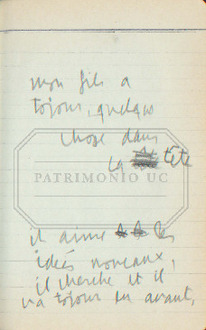 mon fils a
tojour, quelque
chose dans
la tête
PATRIMONIO UC
il aime les
idées noveaux,
il cherche et il
va tojour en avant,